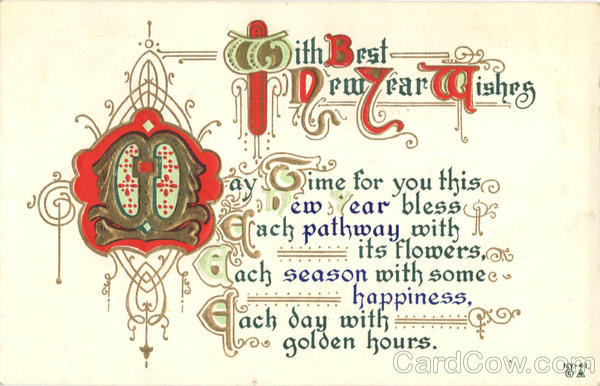 With Best
New Year Wishes
May Time for you this
New Year bless
Each pathway with
its flowers,
Each season with some
happiness,
Each day with
golden hours.
CardCow.com